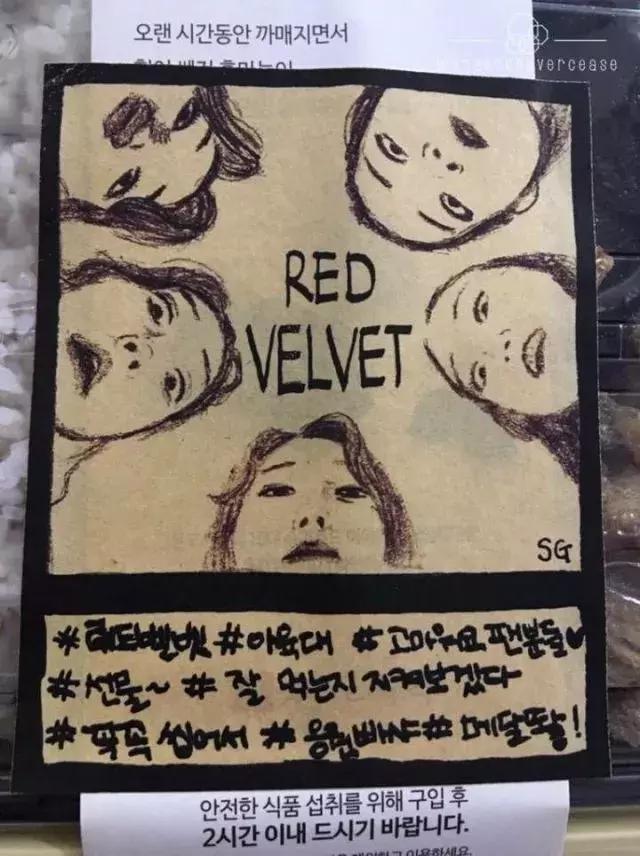 오랜 시간동안 까매지면서
RED
VELVET
SG
#레드벨벳 #아육대 #고마워요 팬분들♥
#선물~ #잘 먹는지 지켜보겠다
#꼭꼭 씹어서 #응원빠샤 #메달딸!
안전한 식품 섭취를 위해 구입 후
2시간 이내 드시기 바랍니다.